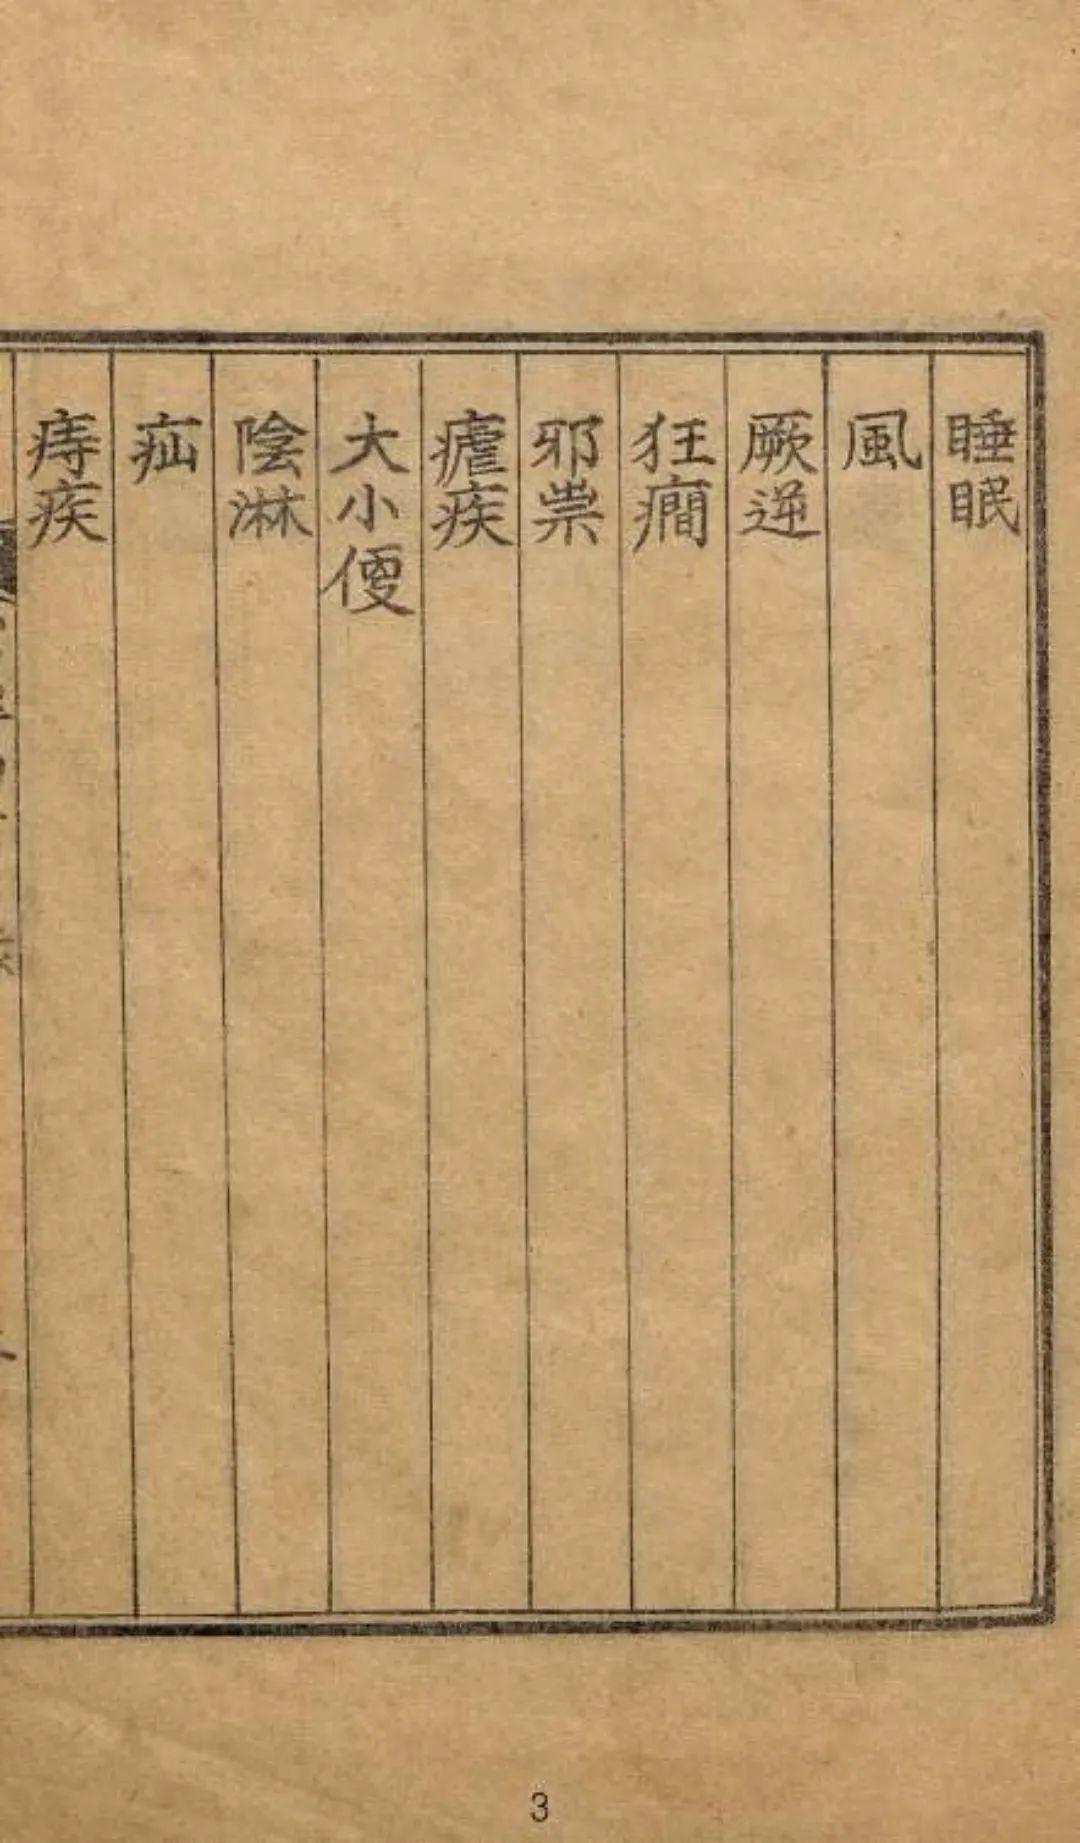 睡眠
風
厥逆
狂癎
邪祟
瘧疾
大小便
陰淋
疝
痔疾
3